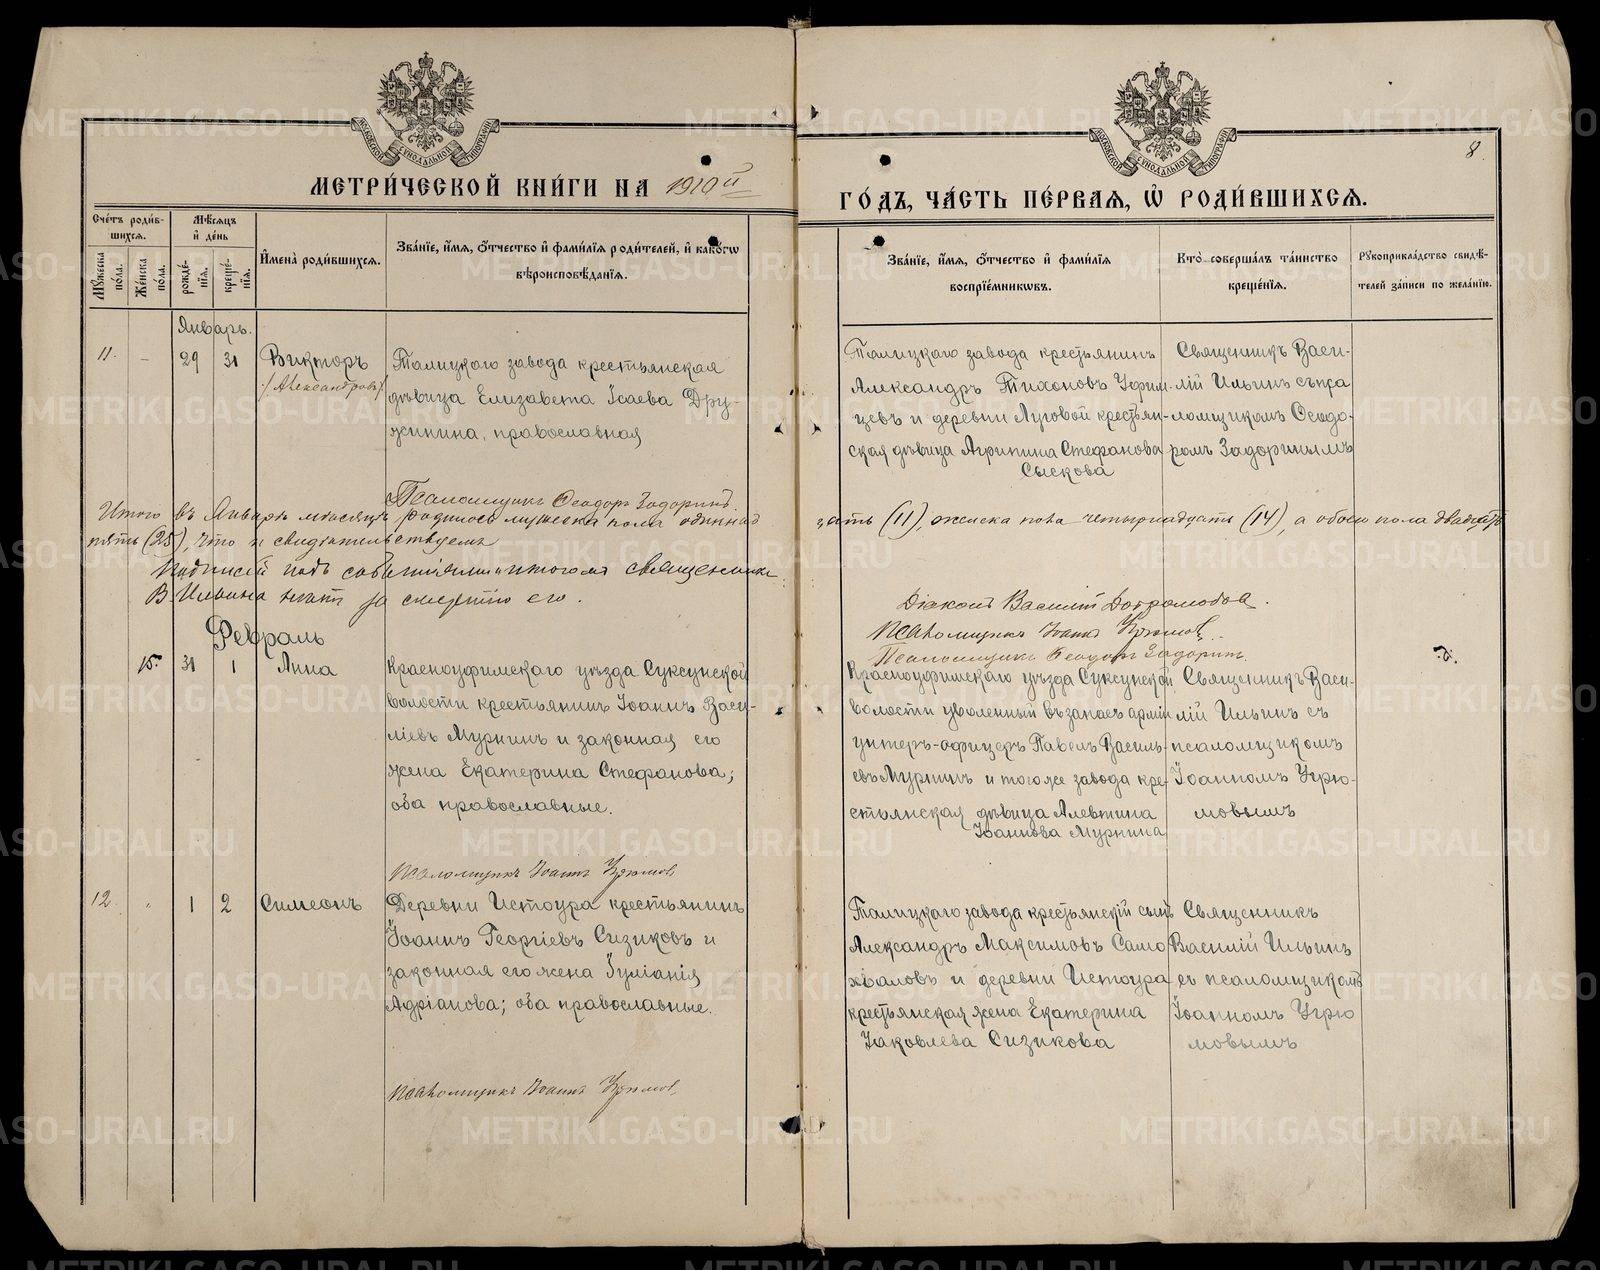 8
МЕТРИ́ЧЕСКОЙ КНИ́ГИ НА 1910й
ГО́ДЪ, ЧА́СТЬ ПЕ́РВАЯ, Ѿ РОДИ́ВШИХСЯ.
Сче́тъ роди́в-
шихся.
Му́жеска по́ла.
Же́нска по́ла.
Мѣ́сяцъ
и҆ де́нь
рожде́-
нїя.
креще́-
нїя.
И҆мена̀ роди́вшихся.
Зва́нїе, и҆́мя, ѻ҆́тчество и҆ фами́лїя роди́телей, и҆ како́гѡ
вѣроисповѣ́данїя.
Зва́нїе, и҆́мя, ѻ҆́тчество и҆ фами́лїя
воспрїе́мниковъ.
Кто̀ соверша́лъ та́инство
креще́нїя.
Рꙋкоприкла́дство свидѣ́-
телей за́писи по жела́нїю.
Январь.
11. – 29 31
Викторъ
/Александровъ/
Талицкаго завода крестьянская
дѣвица Елизавета Исаева Дру-
жинина, православная
Псаломщикъ Ѳеодоръ Задоринъ.
Талицкаго завода крестьянинъ
Александръ Тихоновъ Уфим-
цевъ и деревни Луговой крестьян-
ская дѣвица Агрипина Стефанова
Сыскова
Священникъ Васи-
лій Ильинъ съ пса
ломщикомъ Ѳеодо-
ромъ Задоринымъ
Итого въ Январѣ мѣсяцѣ родилось мужеска пола одиннад
цать (11), женска пола четырнадцать (14), а обоего пола двадцать
пять (25), что и свидѣтельствуемъ
Подписей подъ событіями и итогомъ священника
В. Ильина нѣтъ за смертію его.
Діаконъ Василій
Псаломщикъ Іоаннъ Угрюмовъ.
Псаломщикъ Ѳеодоръ Задоринъ.
Февраль
15. 31 1
Анна
Красноуфимскаго уѣзда Суксунской
волости крестьянинъ Іоаннъ Васи-
ліевъ Мурнинъ и законная его
жена Екатерина Стефанова;
оба православные.
Псаломщикъ Іоаннъ Угрюмовъ
Красноуфимскаго уѣзда Суксунской
волости уволенный въ запасъ арміи
унтеръ-офицеръ Павелъ Василь-
евъ Мурнинъ и того же завода кре-
стьянская дѣвица Алевтина
Іоаннова Мурнина
Священникъ Васи-
лій Ильинъ съ
псаломщикомъ
Іоанномъ Угрю-
мовымъ
12. 1 2
Симеонъ
Деревни Истоура крестьянинъ
Іоаннъ Георгіевъ Сизиковъ и
законная его жена Іуліанія
Адріанова; оба православные.
Псаломщикъ Іоаннъ Угрюмовъ
Талицкаго завода крестьянскій сынъ
Александръ Максимовъ Само
хваловъ и деревни Истоура
крестьянская жена Екатерина
Іаковлева Сизикова
Священникъ
Василій Ильинъ
съ псаломщикомъ
Іоанномъ Угрю
мовымъ
METRIKI.GASO-URAL.RU